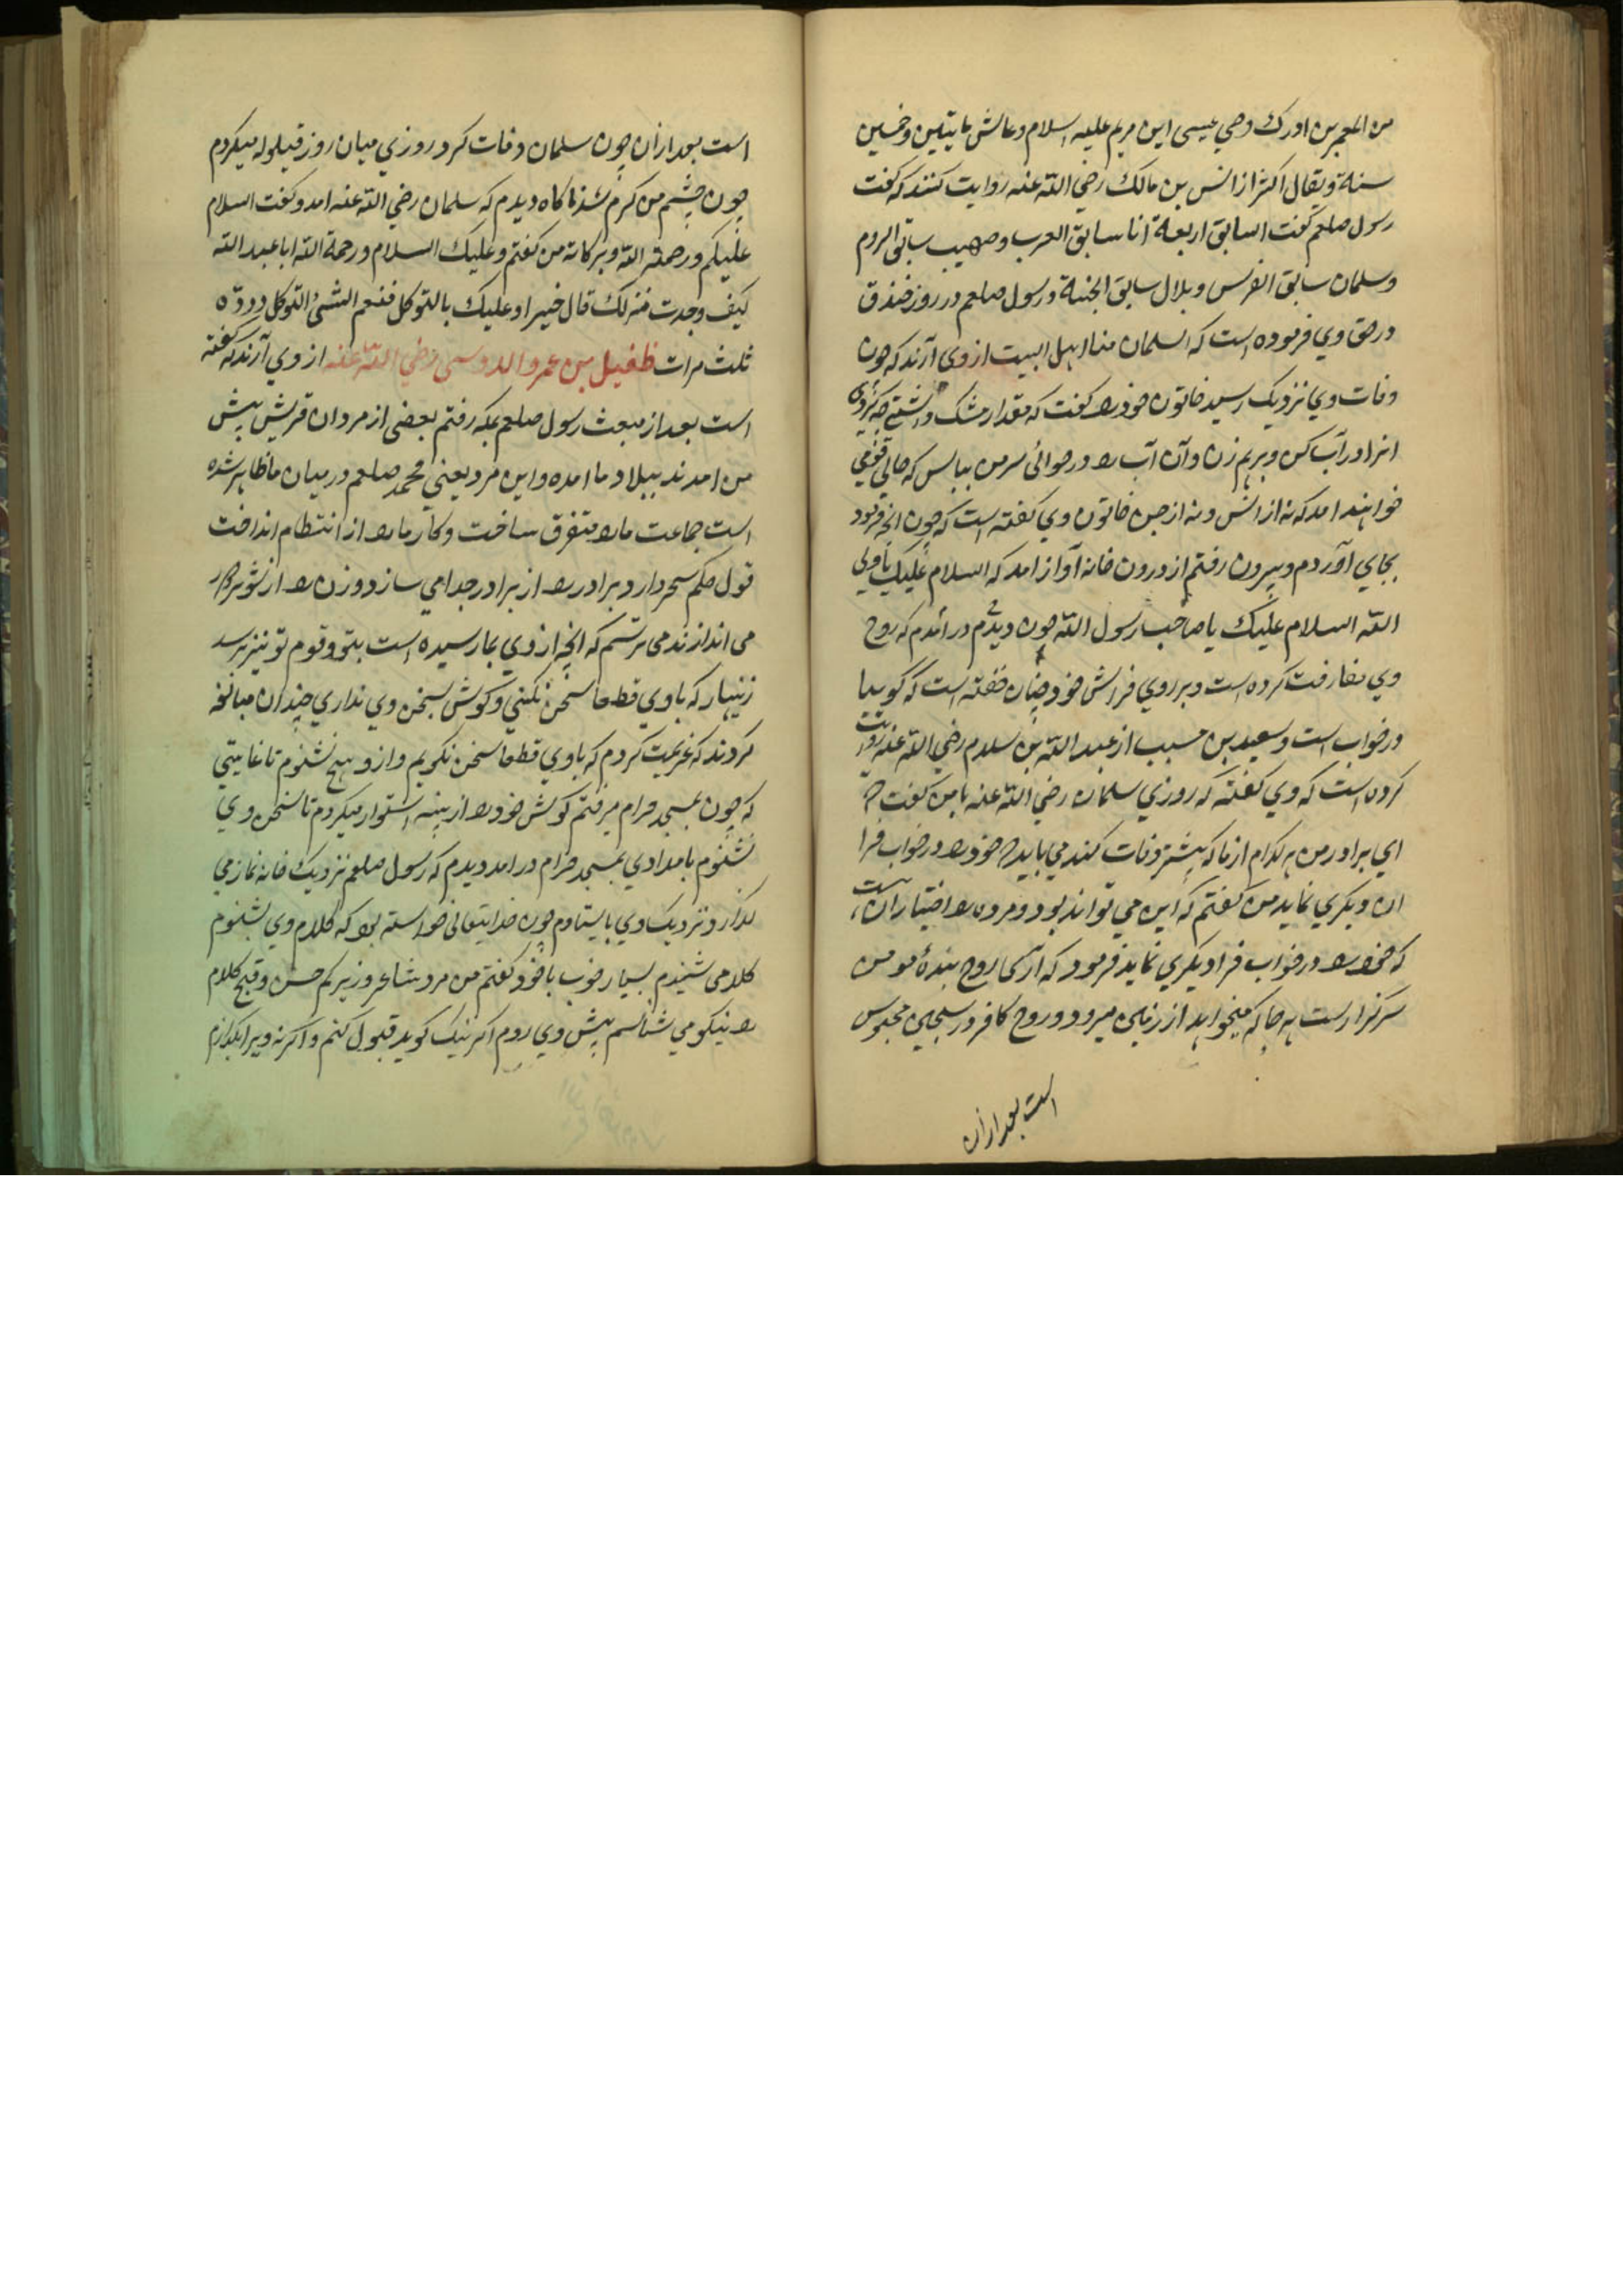 من المعمرین ادرک وصی عیسی ابن مریم علیه السلام و عاش مایتین و خمسین
سنة ویقال اکثر از انس بن مالک رضی الله عنه روایت کنند که گفت
رسول صلعم گفت السابق اربعة انا سابق العرب و صهیب سابق الروم
وسلمان سابق الفرس و بلال سابق الحبشة و رسول صلعم در روز خندق
در حق وی فرموده است که سلمان منا اهل البیت از وی آرند که چون
وفات وی نزدیک رسید خاتون خود را گفت که مقدار مشک داشتی چه کردی
انرا در آب کن و برهم زن و آن آب را در حوالی سر من بپاش که حالی قومی
خواهند امد که نه از انس و نه از جن خاتون وی گفته است که چون انچه فرمود
بجای آوردم و بیرون رفتم از درون خانه آواز امد که السلام علیک یا ولی
الله السلام علیک یا صاحب رسول الله چون در امدم دیدم که روح
وی مفارقت کرده است و بر روی فراش خود چنان خفته است که گوییا
در خواب است و سعید بن مسیب از عبد الله بن سلام رضی الله عنه روایت
کرده است که وی گفته که روزی سلمان رضی الله عنه با من گفت که
ای برادر من هر کدام از ما که پیشتر وفات کند می باید که خود را در خواب فرا
ان دیگری نماید من گفتم که این می تواند بود و مرده را اختیار آن است
که خود را در خواب فرا دیگری نماید فرمود که آری روح بندهٔ مومن
سرگذار است هر جا که میخواهد از زمین میرود و روح کافر در سجین محبوس
است بعد ازان
است بعد ازان چون سلمان وفات کرد روزی میان روز قیلوله میکردم
چون چشم من گرم شد ناکاه دیدم که سلمان رضی الله عنه امد و گفت السلام
علیکم و رحمة الله وبرکاته من گفتم و علیک السلام و رحمة الله ابا عبد الله
کیف وجدت منزلک قال خیرا و علیک بالتوکل فنعم الشئ التوکل رددّه
ثلث مرات طفیل بن عمرو الدوسی رضی الله عنه از وی آرند که گفته
است بعد از مبعث رسول صلعم بمکه رفتم بعضی از مردان قریش پیش
من امدند ببلاد ما امده و این مرد یعنی محمد صلعم در میان ما ظاهر شده
است جماعت ما را متفرق ساخت و کار ما را از انتظام انداخت
قول حکم سحر دارد برادر را از برادر جدا می سازد و زن را از شوهر دور
می اندازند می ترسم که انچه از وی بما رسیده است بتو و قوم تو نیز برسد
زنهار که با وی قطعا سخن نکنی و گوش بسخن وی نداری چندان مبالغه
کردند که عزیمت کردم که با وی قطعا سخن نکویم و ازو هیچ نشنوم تا غایتی
که چون بمسجد حرام میرفتم گوش خود را از پنبه استوار میکردم تا سخن وی
نشنوم بامدادی بمسجد حرام در امد دیدم که رسول صلعم نزدیک خانه نماز می
گذارد نزدیک وی بایستادم چون خدایتعالی خواسته بود که کلام وی بشنوم
کلامی شنیدم بسیار خوب با خود گفتم من مرد شاعر و زیرکم حسن و قبح کلام
را نیکو می شناسم پیش وی روم اگر نیک گوید قبول کنم و اگر نه ویرا بگذارم